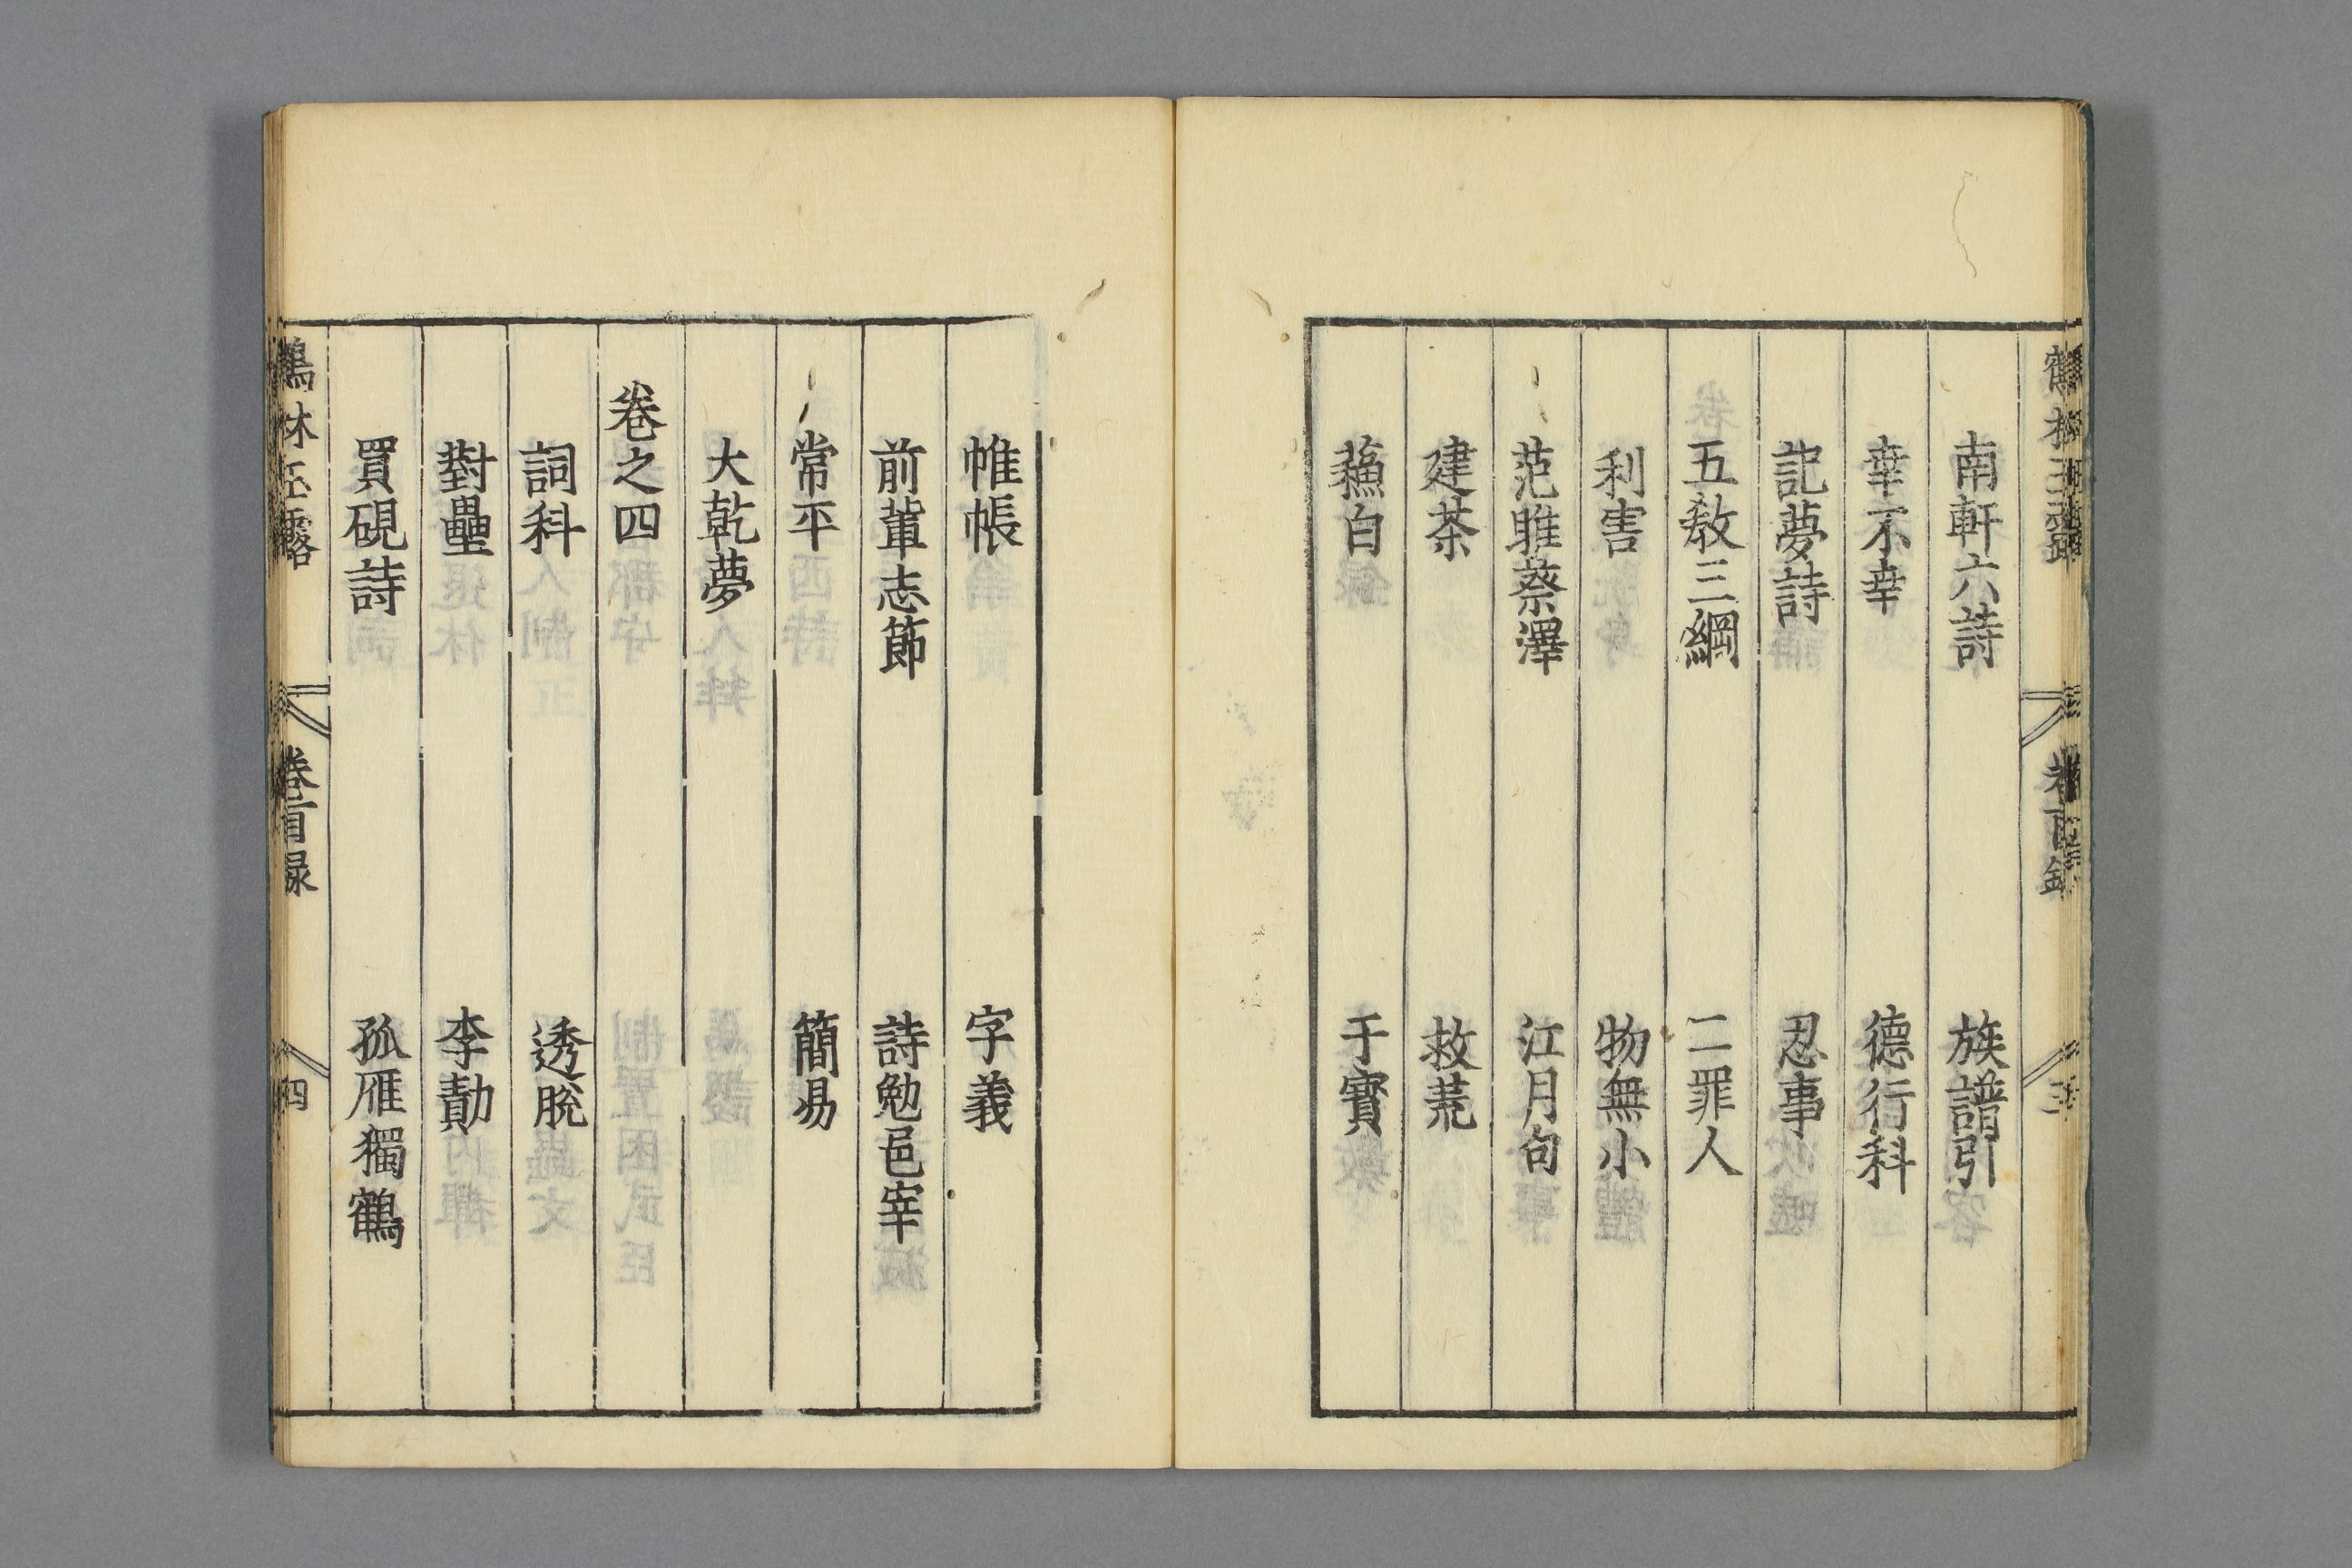 南軒六詩　族譜引
幸不幸　德行科
記夢詩　忍事
五敎三綱　二罪人
利害　物無小
范雎蔡澤　江月句
建茶　救荒
蘓白　于寶
帷帳　字義
前軰志節　詩勉邑宰
常平　簡易
大乾夢
卷之四
詞科　透脫
對壘　李勣
買硯詩　孤雁獨鶴
鶴林玉露　卷首目録　四